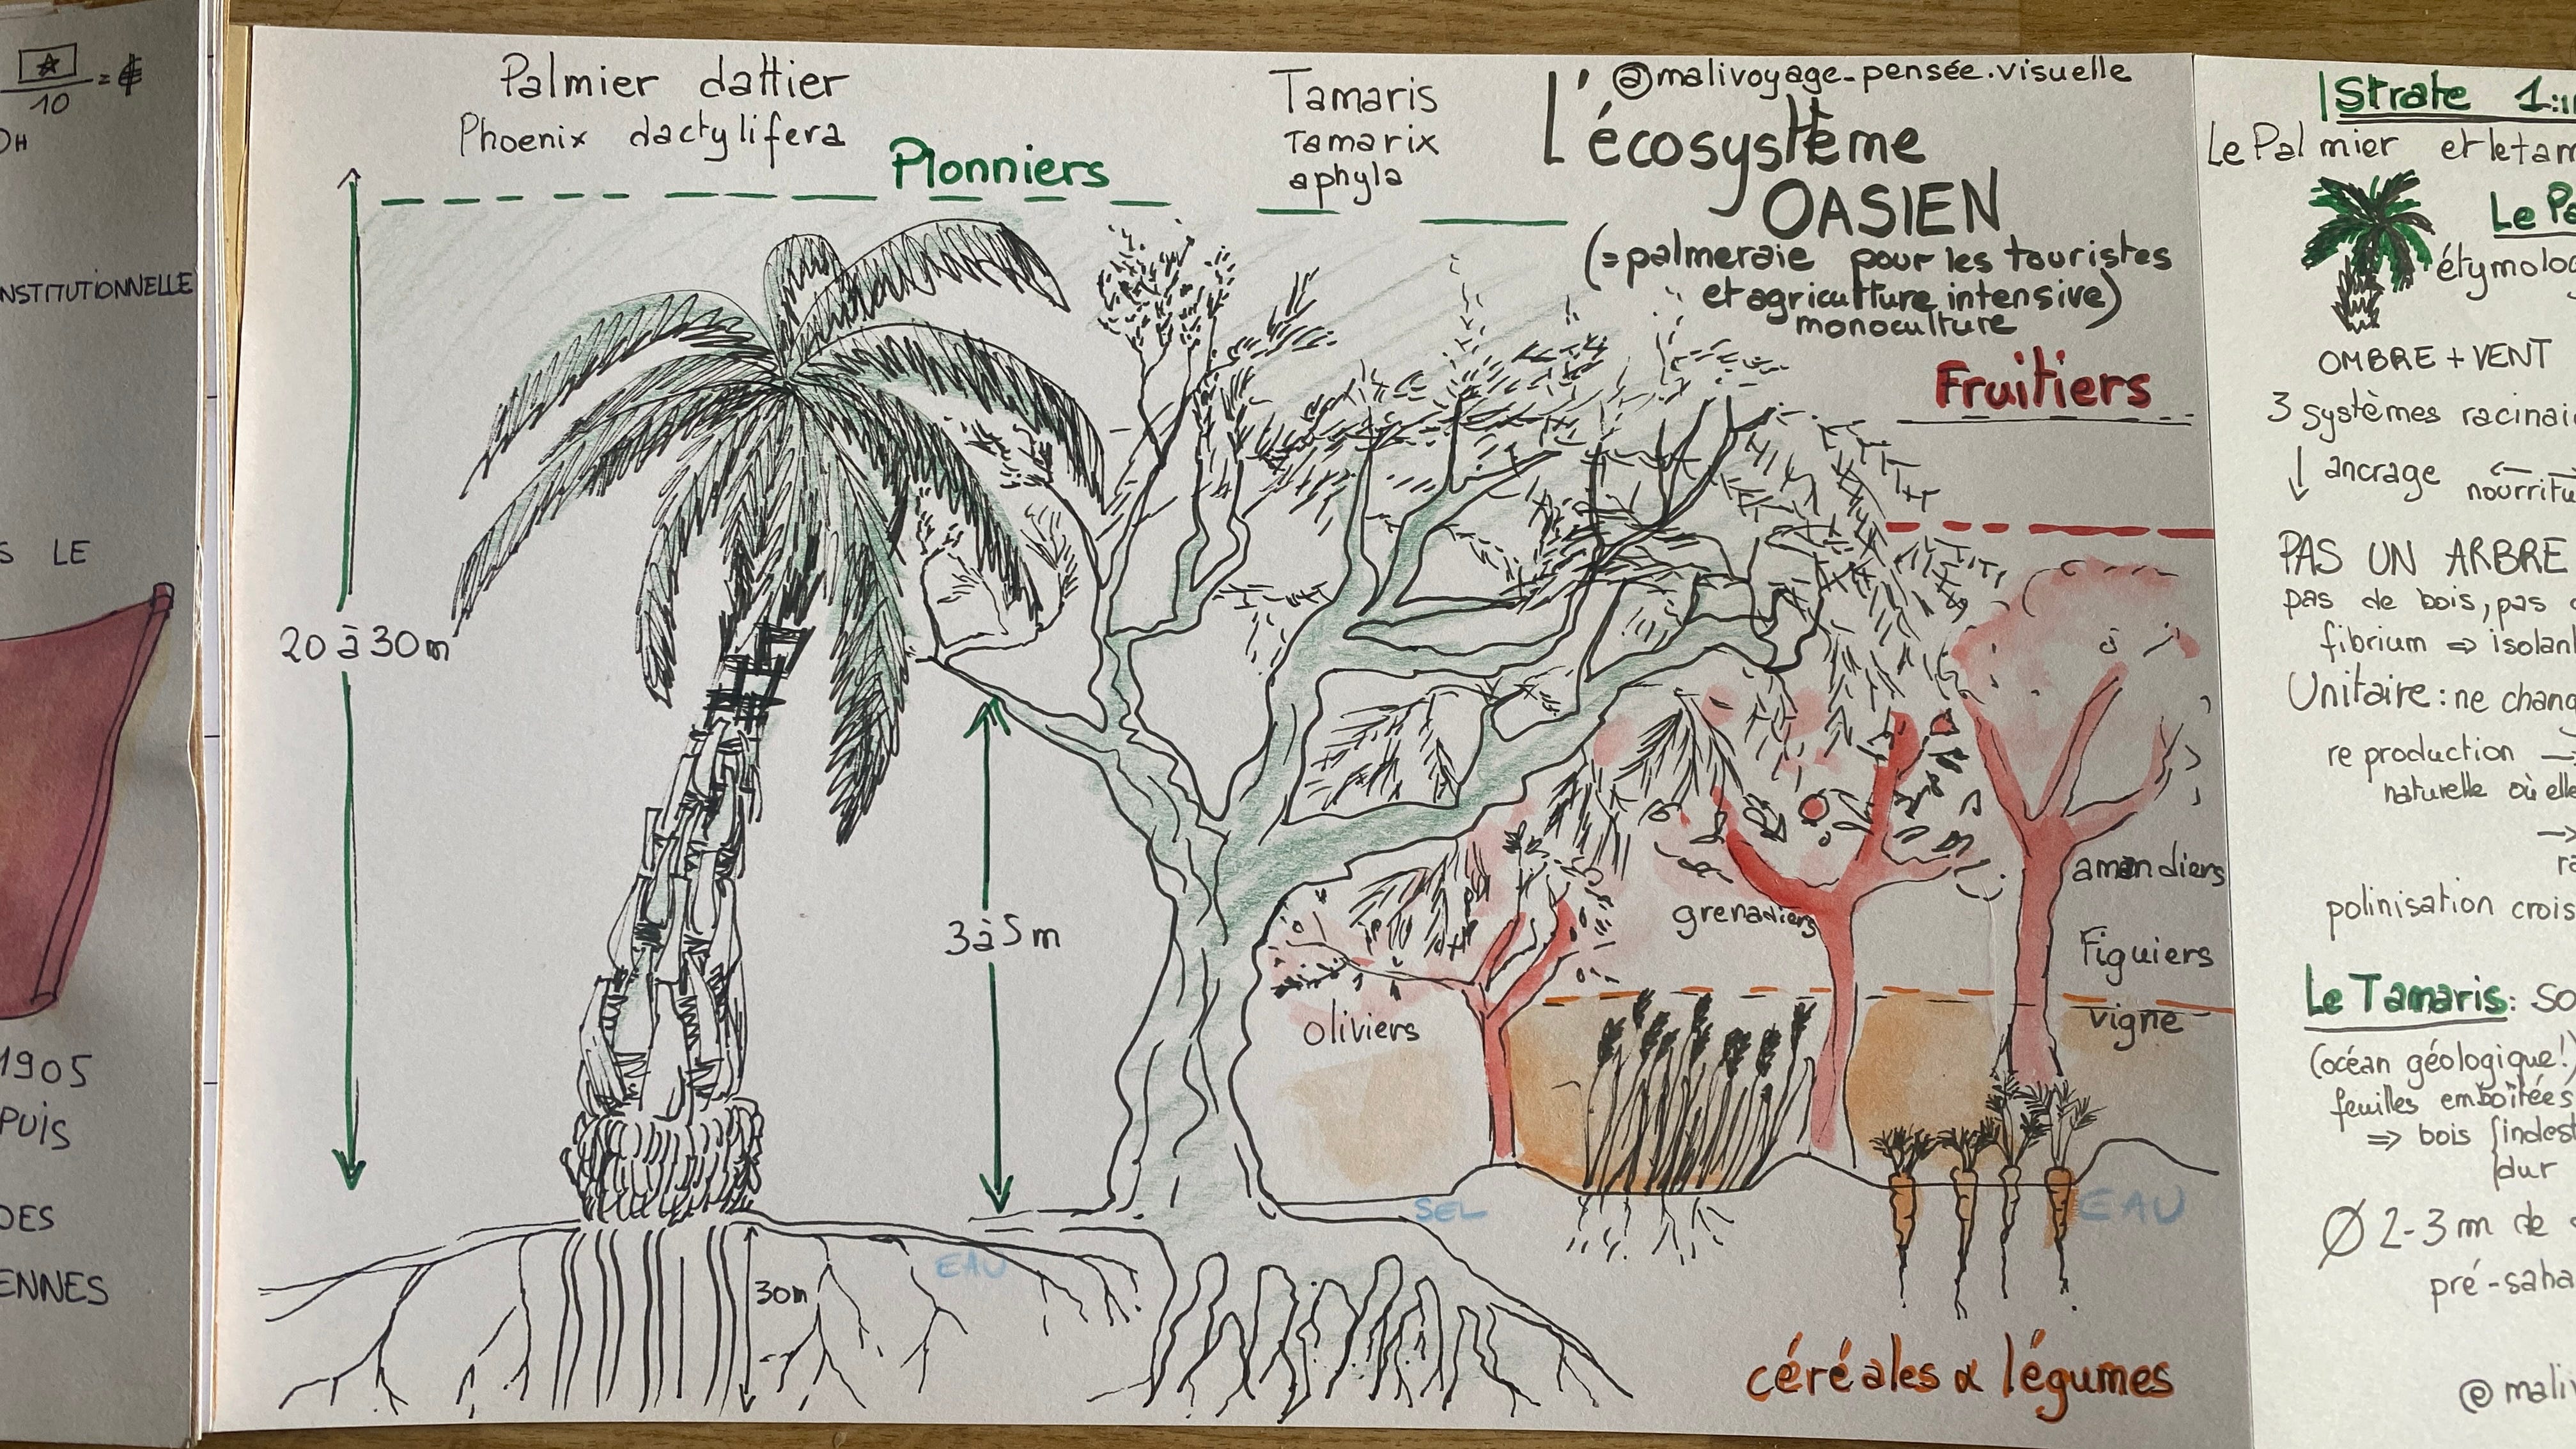 10
NSTITUTIONNELLE
S LE
1905
PUIS
DES
ENNES
Palmier dattier
Phoenix dactylifera
Pionniers
Tamaris
Tamarix
aphyla
@malivoyage-pensée.visuelle
L'écosystème
OASIEN
(=palmeraie pour les touristes
et agriculture intensive)
monoculture
Fruitiers
20 à 30m
3 à 5m
amandiers
grenadiers
Figuiers
vigne
oliviers
SEL
EAU
EAU
30m
céréales & légumes
Strate 1
Le Palmier et le tam
Le Pa
étymolog
OMBRE + VENT
3 systèmes racinai
↓ ancrage ← nourritu
PAS UN ARBRE
pas de bois, pas
fibrium => isolan
Unitaire: ne chang
reproduction →
naturelle où elle
→
ra
polinisation crois
Le Tamaris: so
(océan géologique!)
feuilles emboîtées
=> bois indest
dur
Ø 2-3 m de
pré-saha
@ maliv